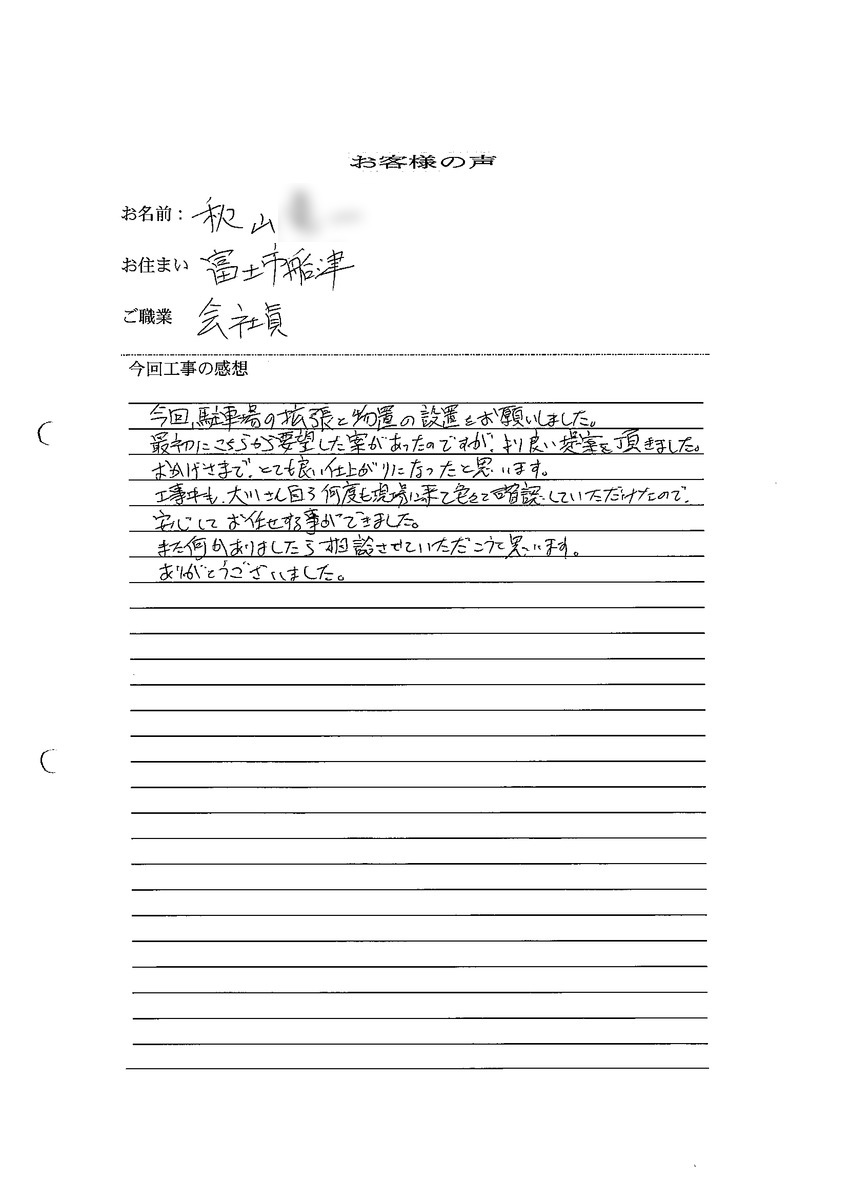 お客様の声
お名前： 秋山
お住まい 富士市船津
ご職業 会社員
今回工事の感想
今回、駐車場の拡張と物置の設置をお願いしました。
最初にこちらから要望した案があったのですが、より良い提案を頂きました。
おかげさまで、とても良い仕上がりになったと思います。
工事中も、大川さん自ら何度も現場に来て色々て確認していただけたので、
安心してお任せする事ができました。
また何かありましたら相談させていただこうと思います。
ありがとうございました。